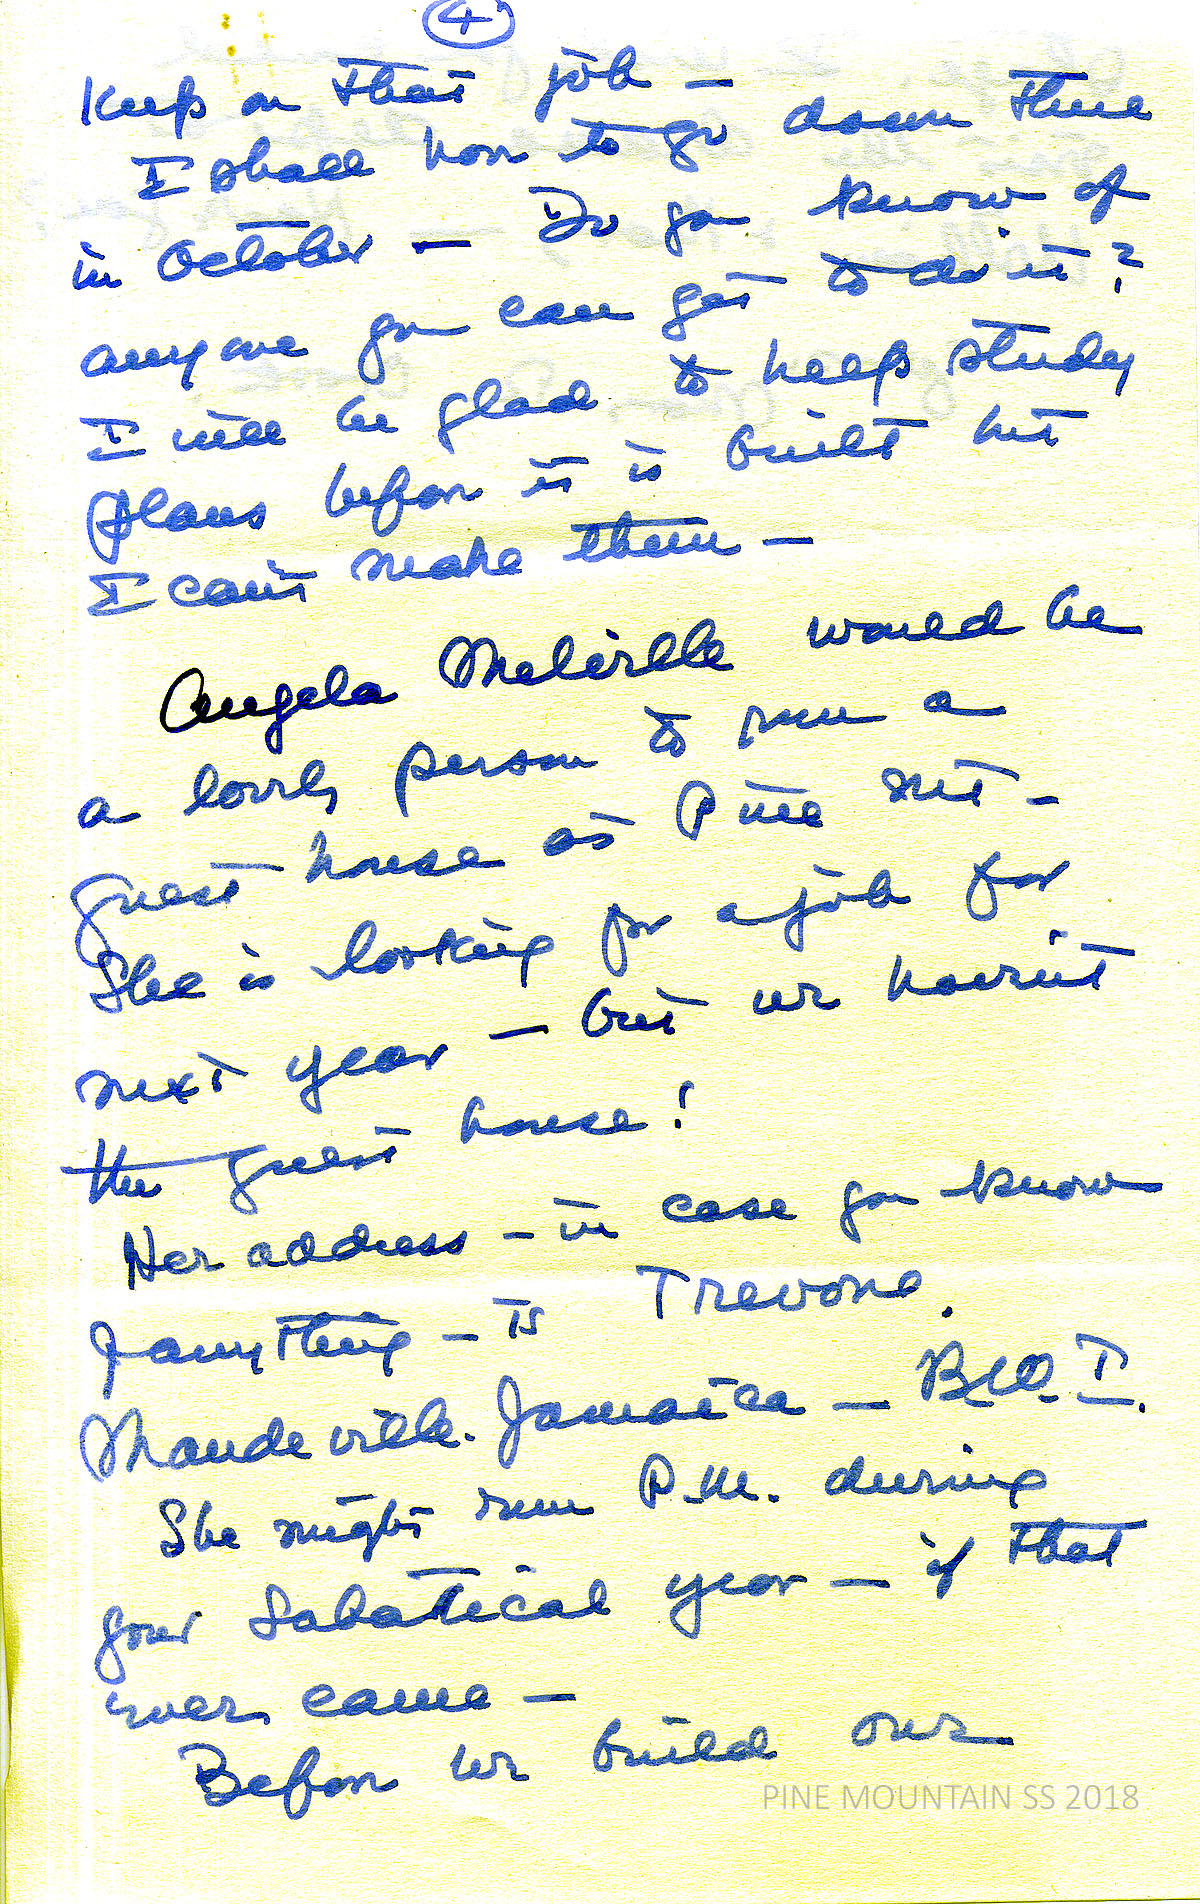 4
Keep on that job —
I shall have to go down there
in October — Do you know of
anyone you can get to do it?
I will be glad to help study
plans before it is built but
I can't make them —
Angela Melville would be
a lovely person to run a
guest house at Pine Mt —
She is looking for a job for
next year — but we haven't
the guest house!
Her address — in case you know
of anything — is Trevone.
Mandeville. Jamaica — B.W.I.
She might run P.M. during
your Sabatical year — if that
ever came —
Before we build our
PINE MOUNTAIN SS 2018